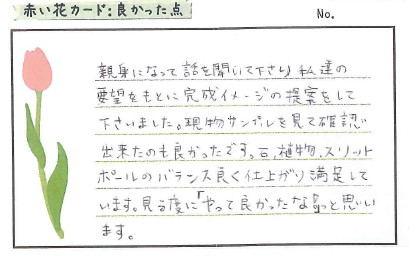 赤い花カード:良かった点
No.
親身になって話を聞いて下さり私達の
要望をもとに完成イメージの提案をして
下さいました。現物サンプルを見て確認
出来たのも良かったです。石、植物、スリット
ポールのバランス良く仕上がり満足して
います。見る度に「やって良かったなぁ」と思い
ます。